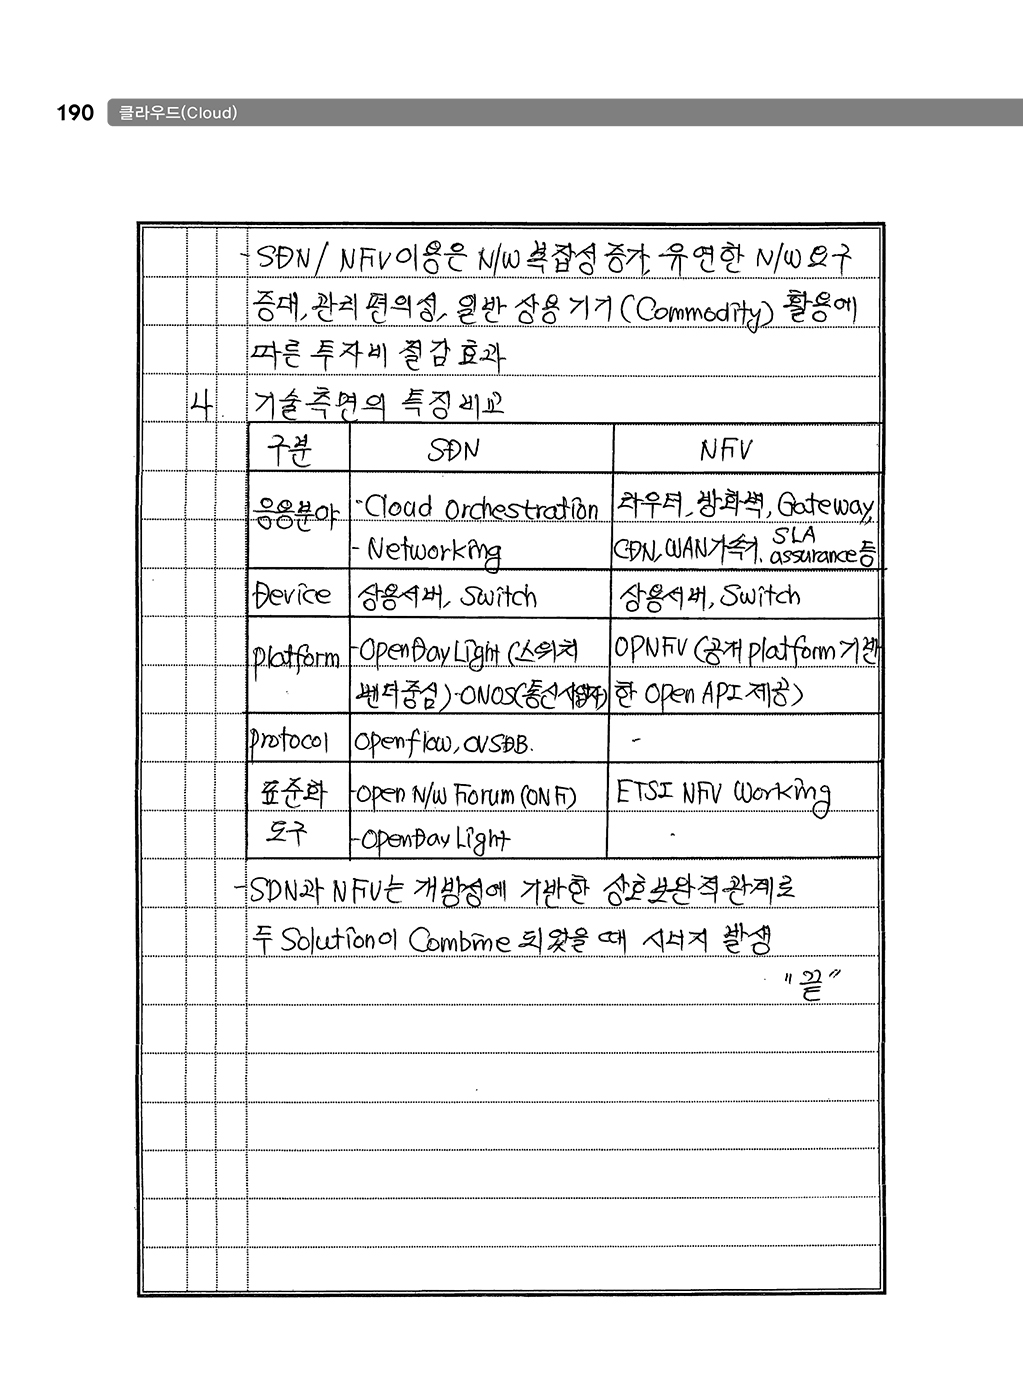 190 클라우드(Cloud)
- SDN / NFV 이용은 N/W 복잡성 증가, 유연한 N/W 요구
증대, 관리 편의성, 일반 상용기기(Commodity) 활용에
따른 투자비 절감 효과
4 기술측면의 특징 비교
구분 SDN NFV
응용분야 - Cloud orchestration 라우터, 방화벽, Gateway,
- Networking CDN, WAN가속기, SLA assurance 등
Device 상용서버, Switch 상용서버, Switch
platform - OpenDayLight (스위치 OPNFV (공개 platform 기반
벤더중심) - ONOS(통신사업자) 한 Open API 제공)
protocol Openflow, OVSDB. -
표준화 - Open N/W Forum (ONF) ETSI NFV Working
도구 - OpenDay Light -
- SDN과 NFV는 개방성에 기반한 상호보완적 관계로
두 Solution이 Combine 되었을 때 시너지 발생
"끝"